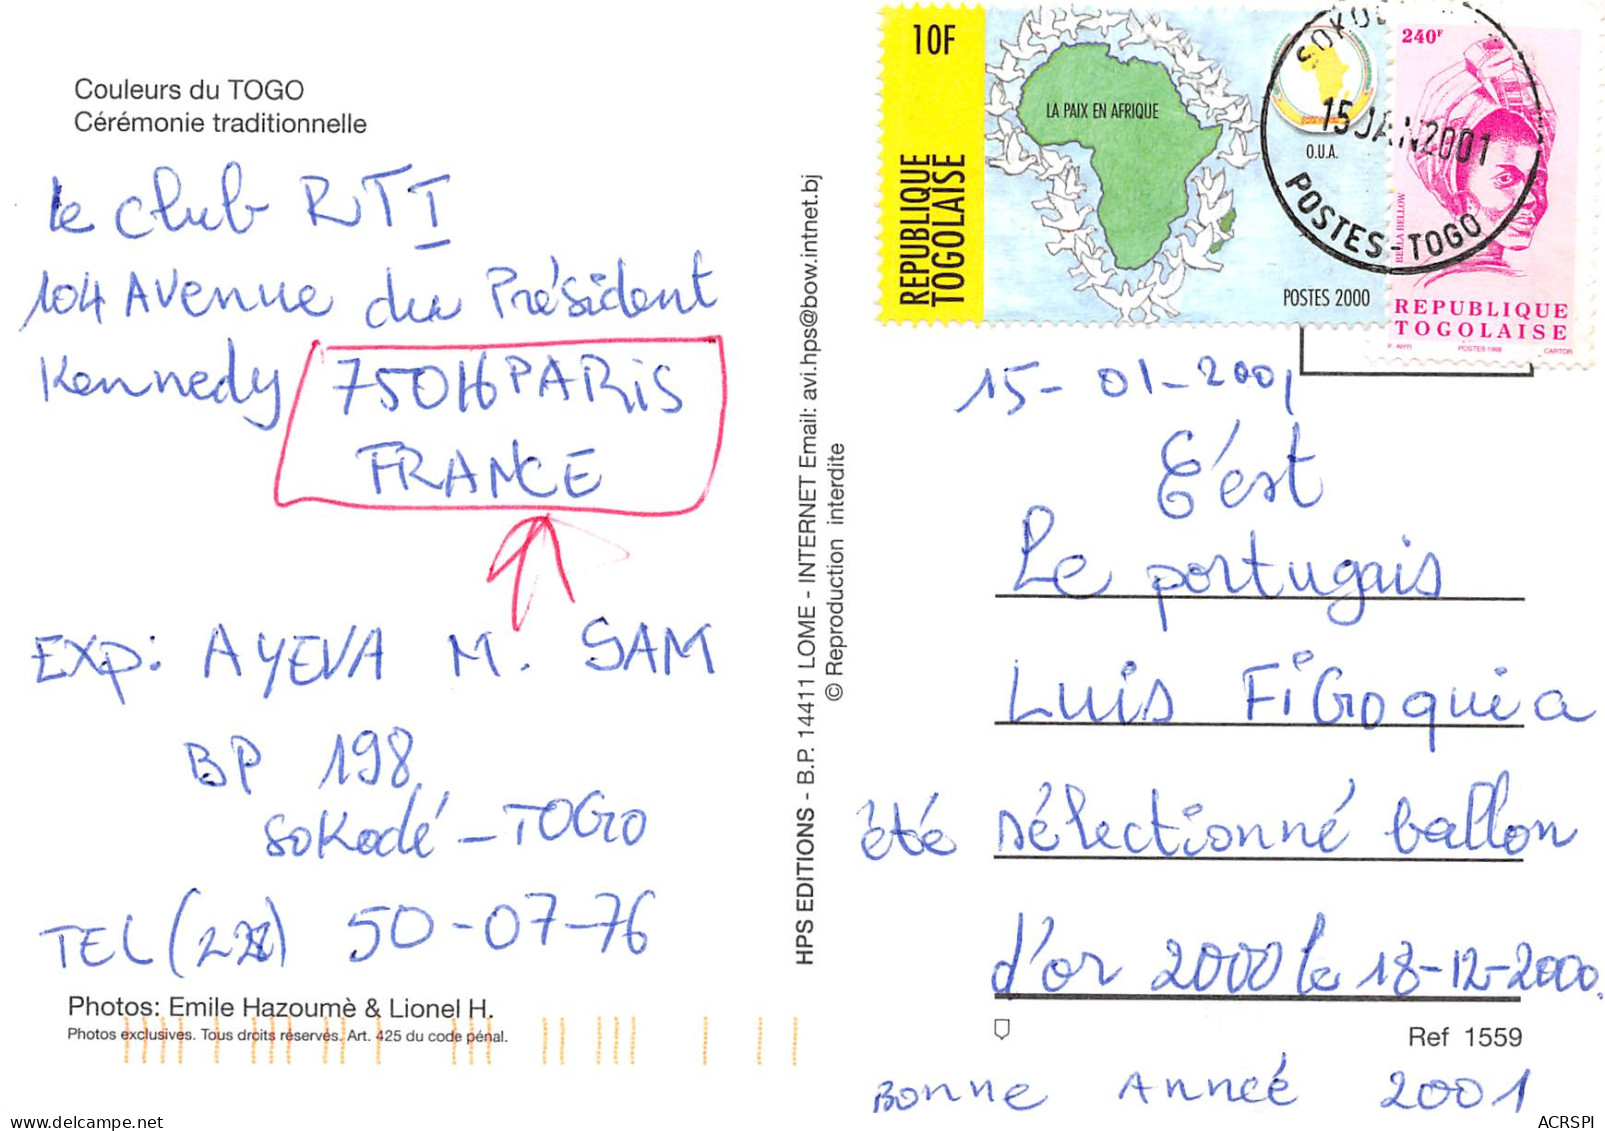 Couleurs du TOGO
Cérémonie traditionnelle
le club RTI
104 Avenue du Président
Kennedy 75016 PARiS
FRANCE
EXP: AYEVA M. SAM
BP 198
SOKodé - TOGO
TEL (228) 50-07-76
Photos: Emile Hazoumè & Lionel H.
Photos exclusives. Tous droits réservés. Art. 425 du code pénal.
HPS EDITIONS - B.P. 14411 LOME - INTERNET Email: avi.hps@bow.intnet.bj
© Reproduction interdite
10F
REPUBLIQUE
TOGOLAISE
LA PAIX EN AFRIQUE
O.U.A.
POSTES 2000
SOKODE
15 JAN 2001
POSTES - TOGO
240F
BELLA BELLOW
REPUBLIQUE
TOGOLAISE
P. AHYI POSTES 1998 CARTOR
15-01-2001
C'est
Le portugais
Luis FiGo qui a
été sélectionné ballon
d'or 2000 le 18-12-2000.
Ref 1559
Bonne Année 2001
ACRSPI